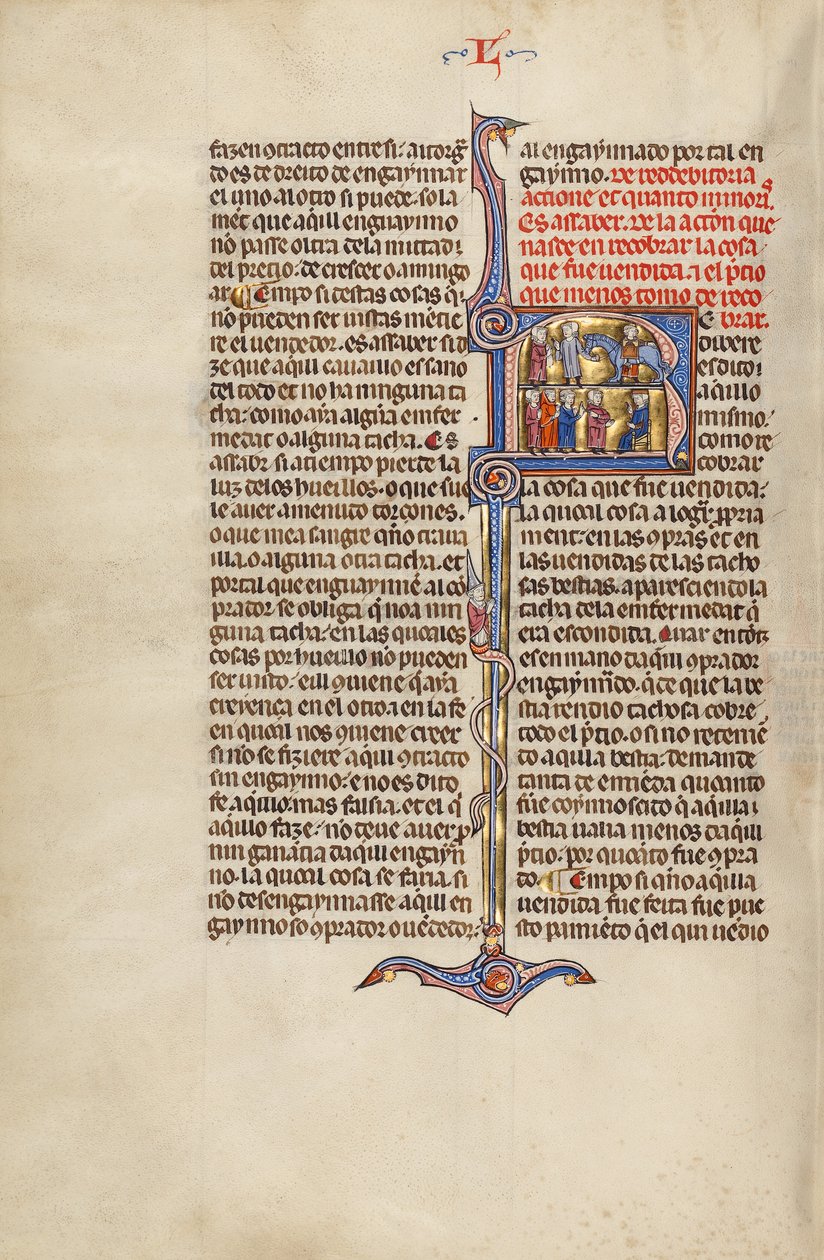 L
fazen ꝯtracto entre si: atorgā
do es de dreito de engaynnar
el uno al otro si puede. sola
mēt que aq̄ill enguaynno
nō passe oltra dela mittad:
del precio: de crescer o amingo
ar Empo si destas cosas q̄
nō pueden ser uistas mētie
re el uendedor. es assaber si di
ze que aq̄ill cauaillo es sano
del todo et no ha ninguna ta
cha: como aya algūa emfer
medat o alguna tacha. Es
assabr si a tiempo pierde la
luz delos hueillos. o que sue
le auer a menudo torçones.
o que mea sangre
o alguna otra tacha. et
por tal que enguaynnē al cō
prador se obliga q̄ no a nin
guna tacha: en las quoales
cosas por hueillo nō pueden
ser uisto: eill ꝯuiene q̄ aya
creyença en el otro. en la fe
en quoal nos ꝯuiene creer
si nō se fiziere aq̄ill ꝯtracto
sin engaynno: e no es dito
fe aq̄illo: mas falsia. et el q̄
aq̄illo faze: nō deue auer ꝑ
nin ganācia daq̄ill engayn
no. la quoal cosa se faria. si
nō desengaynnasse aq̄ill en
gaynno so ꝯprador o uēdedor:
al engaynnado por tal en
gaynno. De reddebitoria
actione et quanto minoris.
Es assaber. De la actōn que
nasce en recobrar la cosa
que fue uendida. et el p̄cio
que menos tomo de reco
brar.
dibere
es dito:
aq̄illo
mismo:
como re
cobrar
la cosa que fue uendida:
la quoal cosa a logar ꝓpria
ment: en las ꝯpras et en
las uendidas de las tacho
sas bestias. aparesciendo la
tacha dela emfermedat q̄
era escondida. Quar entōz
es en mano daq̄ill ꝯprador
engaynnado. q̄ de que la be
stia rendio tachosa cobre
todo el p̄cio. o si no reteniē
do aq̄illa bestia: demande
tanta de emiēda quoanto
fue coynnoscido q̄ aq̄illa
bestia ualia menos daq̄ill
p̄cio: por quoanto fue ꝯpra
do. Empo si q̄no aq̄illa
uendida fue feita fue pue
sto pamiēto q̄ el qui uēdio